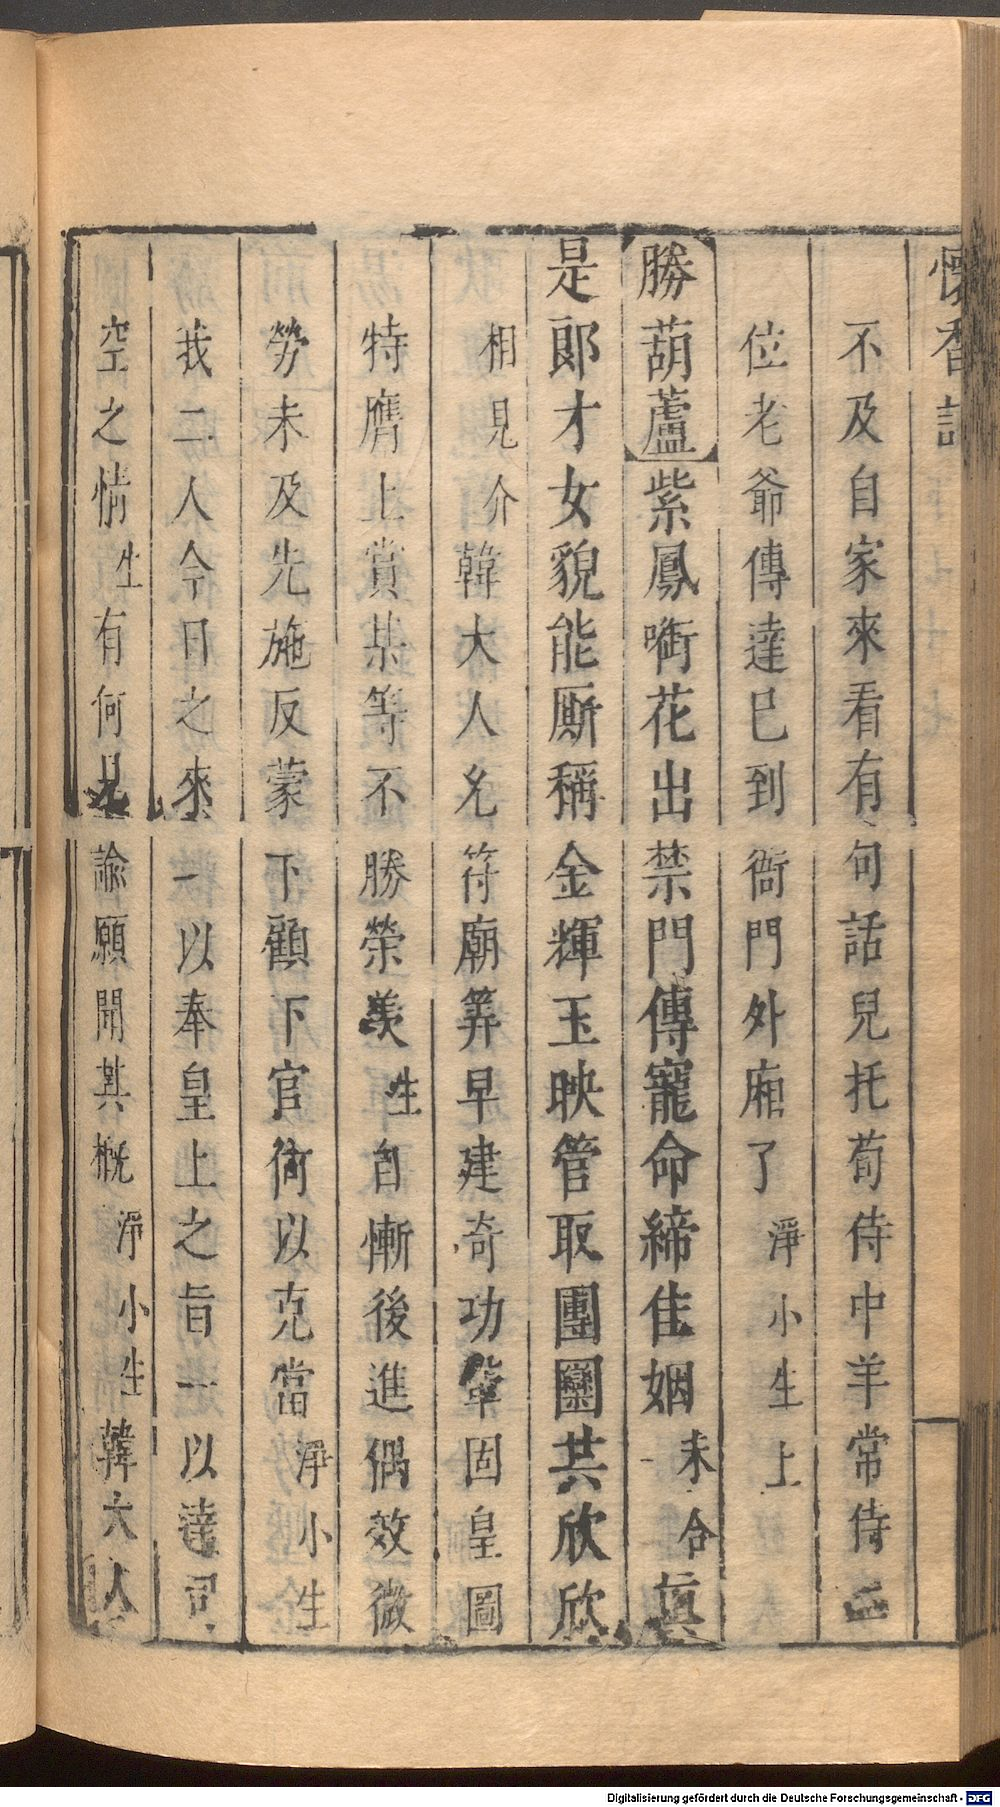 懷香記
不及自家來看有句話兒托荀侍中羊常侍二
位老爺傳達已到衙門外廂了淨小生上
勝葫蘆紫鳳啣花出禁門傳寵命締佳姻末合真
是郎才女貌能厮稱金輝玉映管取團圞共欣欣
相見介韓大人允符廟筭早建奇功鞏固皇圖
特膺上賞某等不勝榮羨生自慚後進偶效微
勞未及先施反蒙下顧下官何以克當淨小生
我二人今日之來一以奉皇上之旨一以達司
空之情生有何見諭願聞其概淨小生韓大人
Digitalisierung gefördert durch die Deutsche Forschungsgemeinschaft - DFG